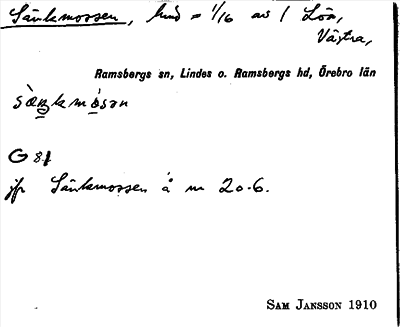 Sänkmossen, hmd = 1/16 av 1 Lön,
Västra,
Ramsbergs sn, Lindes o. Ramsbergs hd, Örebro län
G 81
jfr Sänkmossen å nr 20.6.
SAM JANSSON 1910